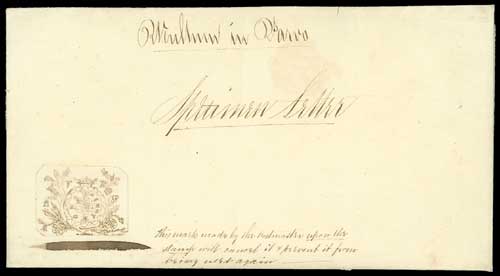 Multum in Parvo
Specimen Letter
This mark made by the Postmaster upon the
stamp will cancel it & prevent it from
being used again